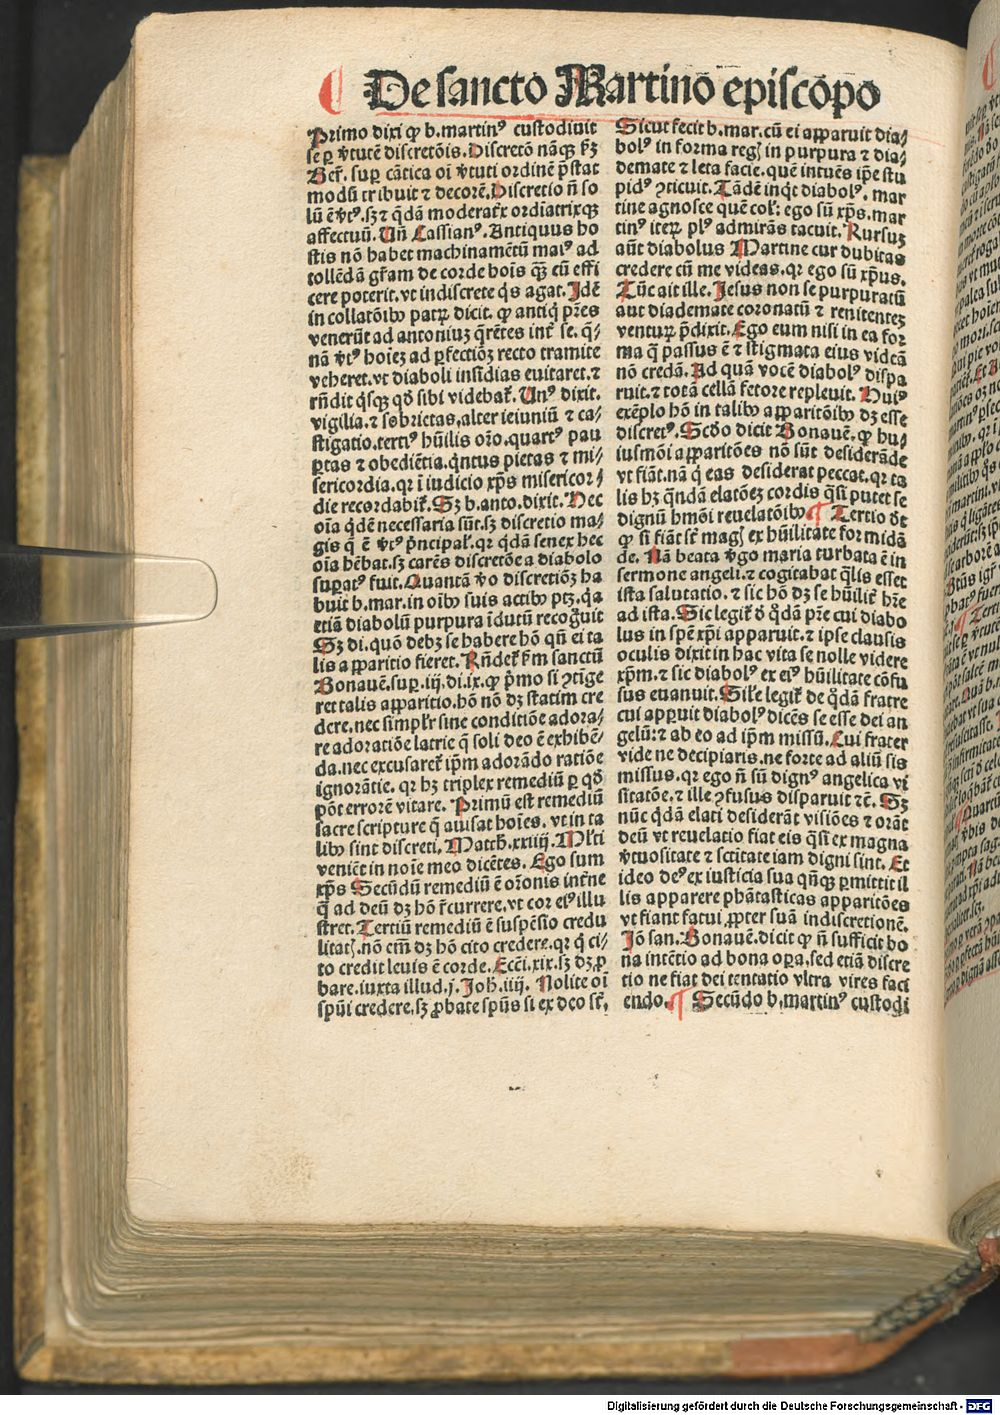 ¶ De sancto Martino episcōpo
Primo dixi ꝙ b. martinꝰ custodiuit
se ꝑ v̓tutē discretōis. Discretō nāqꝫ ẜm
Ber̄. suꝑ cātica oī v̓tuti ordinē p̄stat
modū tribuit ⁊ decorē. Discretio n̄ so
lū ē v̓tꝰ. sꝫ ⁊ q̄dā moderatr̄x ordīatrixqꝫ
affectuū. Un̄ Cassianꝰ. Antiquus ho
stis nō habet machinamētū maiꝰ ad
tollēdā gr̄am de corde hoīs q̄ꝫ cū effi
cere poterit. vt indiscrete q̇s agat. Idē
in collatōibꝰ patrꝝ dicit. ꝙ antiq̇ pr̄es
venerūt ad antoniuꝫ q̄rētes int̓ se. q̄-
nā v̓tꝰ hoīeꝫ ad ꝑfectiōꝫ recto tramite
veheret. vt diaboli insidias euitaret. ⁊
rn̄dit q̇sqꝫ qd̓ sibi videbat̄. Unꝰ dixit.
vigilia. ⁊ sobrietas, alter ieiuniū ⁊ ca-
stigatio. tertiꝰ hūilis or̄o. quartꝰ pau
ꝑtas ⁊ obediētia. q̇ntus pietas ⁊ mi-
sericordia. qꝛ ī iudicio xp̄s misericor-
die recordabit̄. Sꝫ b. anto. dixit. Hec
oīa q̇dē necessaria sūt. sꝫ discretio ma-
gis q̄ ē v̓tꝰ p̄ncipal̓. qꝛ q̇dā senex hec
oīa hēbat. sꝫ carēs discretōe a diabolo
suꝑatꝰ fuit. Quantā v̓o discretiōꝫ ha
buit b. mar. in oībꝰ suis actibꝰ ptꝫ. q̇a
etiā diabolū purpura īdutū recog̓uit
Sꝫ di. quō debꝫ se habere hō qn̄ ei ta
lis apparitio fieret. Rn̄det̄ ẜm sanctū
Bonauē. suꝑ. iij. di. ix. ꝙ p̓mo si ↄtige
ret talis apparitio. hō nō dꝫ statim cre
dere. nec simpl̓r sine conditiōe adora-
re adoratiōe latrie q̄ soli deo ē exhibē-
da. nec excusaret̄ ip̄m adorādo ratiōe
ignorātie. qꝛ hꝫ triplex remediū ꝑ qd̓
pōt errorē vitare. Primū est remediū
sacre scripture q̄ auisat hoīes. vt in ta
libꝰ sint discreti. Matth̓. xxiiij. Ml̓ti
veniēt in noīe meo dicētes. Ego sum
xp̄s Secūdū remediū ē or̄onis inter̄ne
q̄ ad deū dꝫ hō r̄currere. vt cor eiꝰ illu
stret. Tertiū remediū ē suspēsio credu
litatꝭ. nō em̄ dꝫ hō cito credere. qꝛ q̇ ci-
to credit leuis ē corde. Ecci. xix. sꝫ dꝫ ꝓ
bare. iuxta illud. j. Joh̓. iiij. Nolite oī
sp̄ui credere. sꝫ ꝓbate sp̄us si ex deo st̄.
Sicut fecit b. mar. cū ei apparuit dia-
bolꝰ in forma regꝭ in purpura ⁊ dia-
demate ⁊ leta facie. quē intuēs ip̄e stu
pidꝰ ↄticuit. Tādē inq̇t diabolꝰ. mar
tine agnosce quē col̓: ego sū xp̄s. mar
tinꝰ iteꝝ plꝰ admirās tacuit. Rursuꝫ
aūt diabolus Martine cur dubitas
credere cū me videas. qꝛ ego sū xp̄us.
Tūc ait ille. Jesus non se purpuratū
aut diademate coronatū ⁊ renitenteꝫ
venturꝝ p̄dixit. Ego eum nisi in ea for
ma q̄ passus ē ⁊ stigmata eius videā
nō credā. Ad quā vocē diabolꝰ dispa
ruit. ⁊ totā cellā fetore repleuit. Huiꝰ
exēplo hō in talibꝰ apparitōibꝰ dꝫ esse
discretꝰ. Scd̓o dicit Bonauē. ꝙ hu-
iusmōi apparitōes nō sūt desiderāde
vt fiāt. nā q̇ eas desiderat peccat. qꝛ ta
lis hꝫ q̄ndā elatōeꝫ cordis q̄si putet se
dignū hmōi reuelatōibꝰ ¶ Tertio d̓t
ꝙ si fiāt st̄ magꝭ ex hūilitate formidā
de. Nā beata v̓go maria turbata ē in
sermone angeli. ⁊ cogitabat q̄lis esset
ista salutatio. ⁊ sic hō dꝫ se hūilit̄ hr̄e
ad ista. Sic legit̄ d̓ q̇dā pr̄e cui diabo
lus in spē xp̄i apparuit. ⁊ ipse clausis
oculis dixit in hac vita se nolle videre
xp̄m. ⁊ sic diabolꝰ ex eiꝰ hūilitate cōfu
sus euanuit. Sil̓e legit̄ de q̇dā fratre
cui apꝑuit diabolꝰ dicēs se esse dei an
gelū: ⁊ ab eo ad ip̄m missū. Cui frater
vide ne decipiaris. ne forte ad aliū sis
missus. qꝛ ego n̄ sū dignꝰ angelica vi
sitatōe. ⁊ ille ↄfusus disparuit ⁊c̄. Sꝫ
nūc q̇dā elati desiderāt visiōes ⁊ orāt
deū vt reuelatio fiat eis q̄si ex magna
v̓tuositate ⁊ sctitate iam digni sint. Et
ideo deꝰ ex iusticia sua qn̄qꝫ ꝑmittit il
lis apparere phātasticas apparitōes
vt fiant fatui ꝓpter suā indiscretionē.
Jō san. Bonauē. dicit ꝙ n̄ sufficit bo
na intētio ad bona oꝑa. sed etiā discre
tio ne fiat dei tentatio vltra vires faci
endo. ¶ Secūdo b. martinꝰ custodi
Digitalisierung gefördert durch die Deutsche Forschungsgemeinschaft - DFG